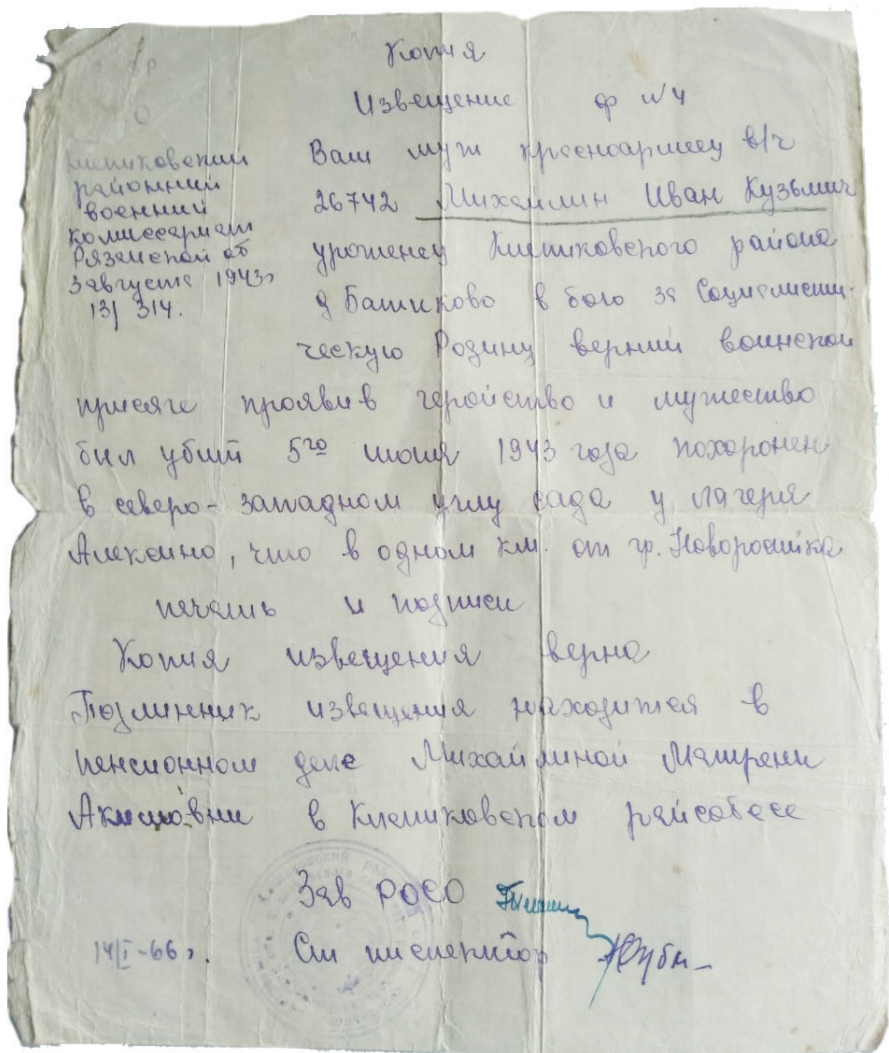 Копия
Извещение ф №4
Клепиковский
районний
военний
комиссариат
Рязанской об
3 августа 1943г
13/ 314.
Ваш муж красноармеец в/ч
26742 Михайлин Иван Кузьмич
уроженец Клепиковского района
д Башково в бою за Социалисти-
ческую Родину верний воинской
присяге проявив геройство и мужество
был убит 5го июня 1943 года похоронен
в северо-западном углу сада у лагеря
Алексино, что в одном км. от гр. Новоросийка
печать и подписи
Копия извещения верна
Подлинник извещения находится в
пенсионном деле Михайлиной Матрени
Акимовни в Клепиковском райсобесе
Зав РОСО
14/I-66г. Ст инспектор